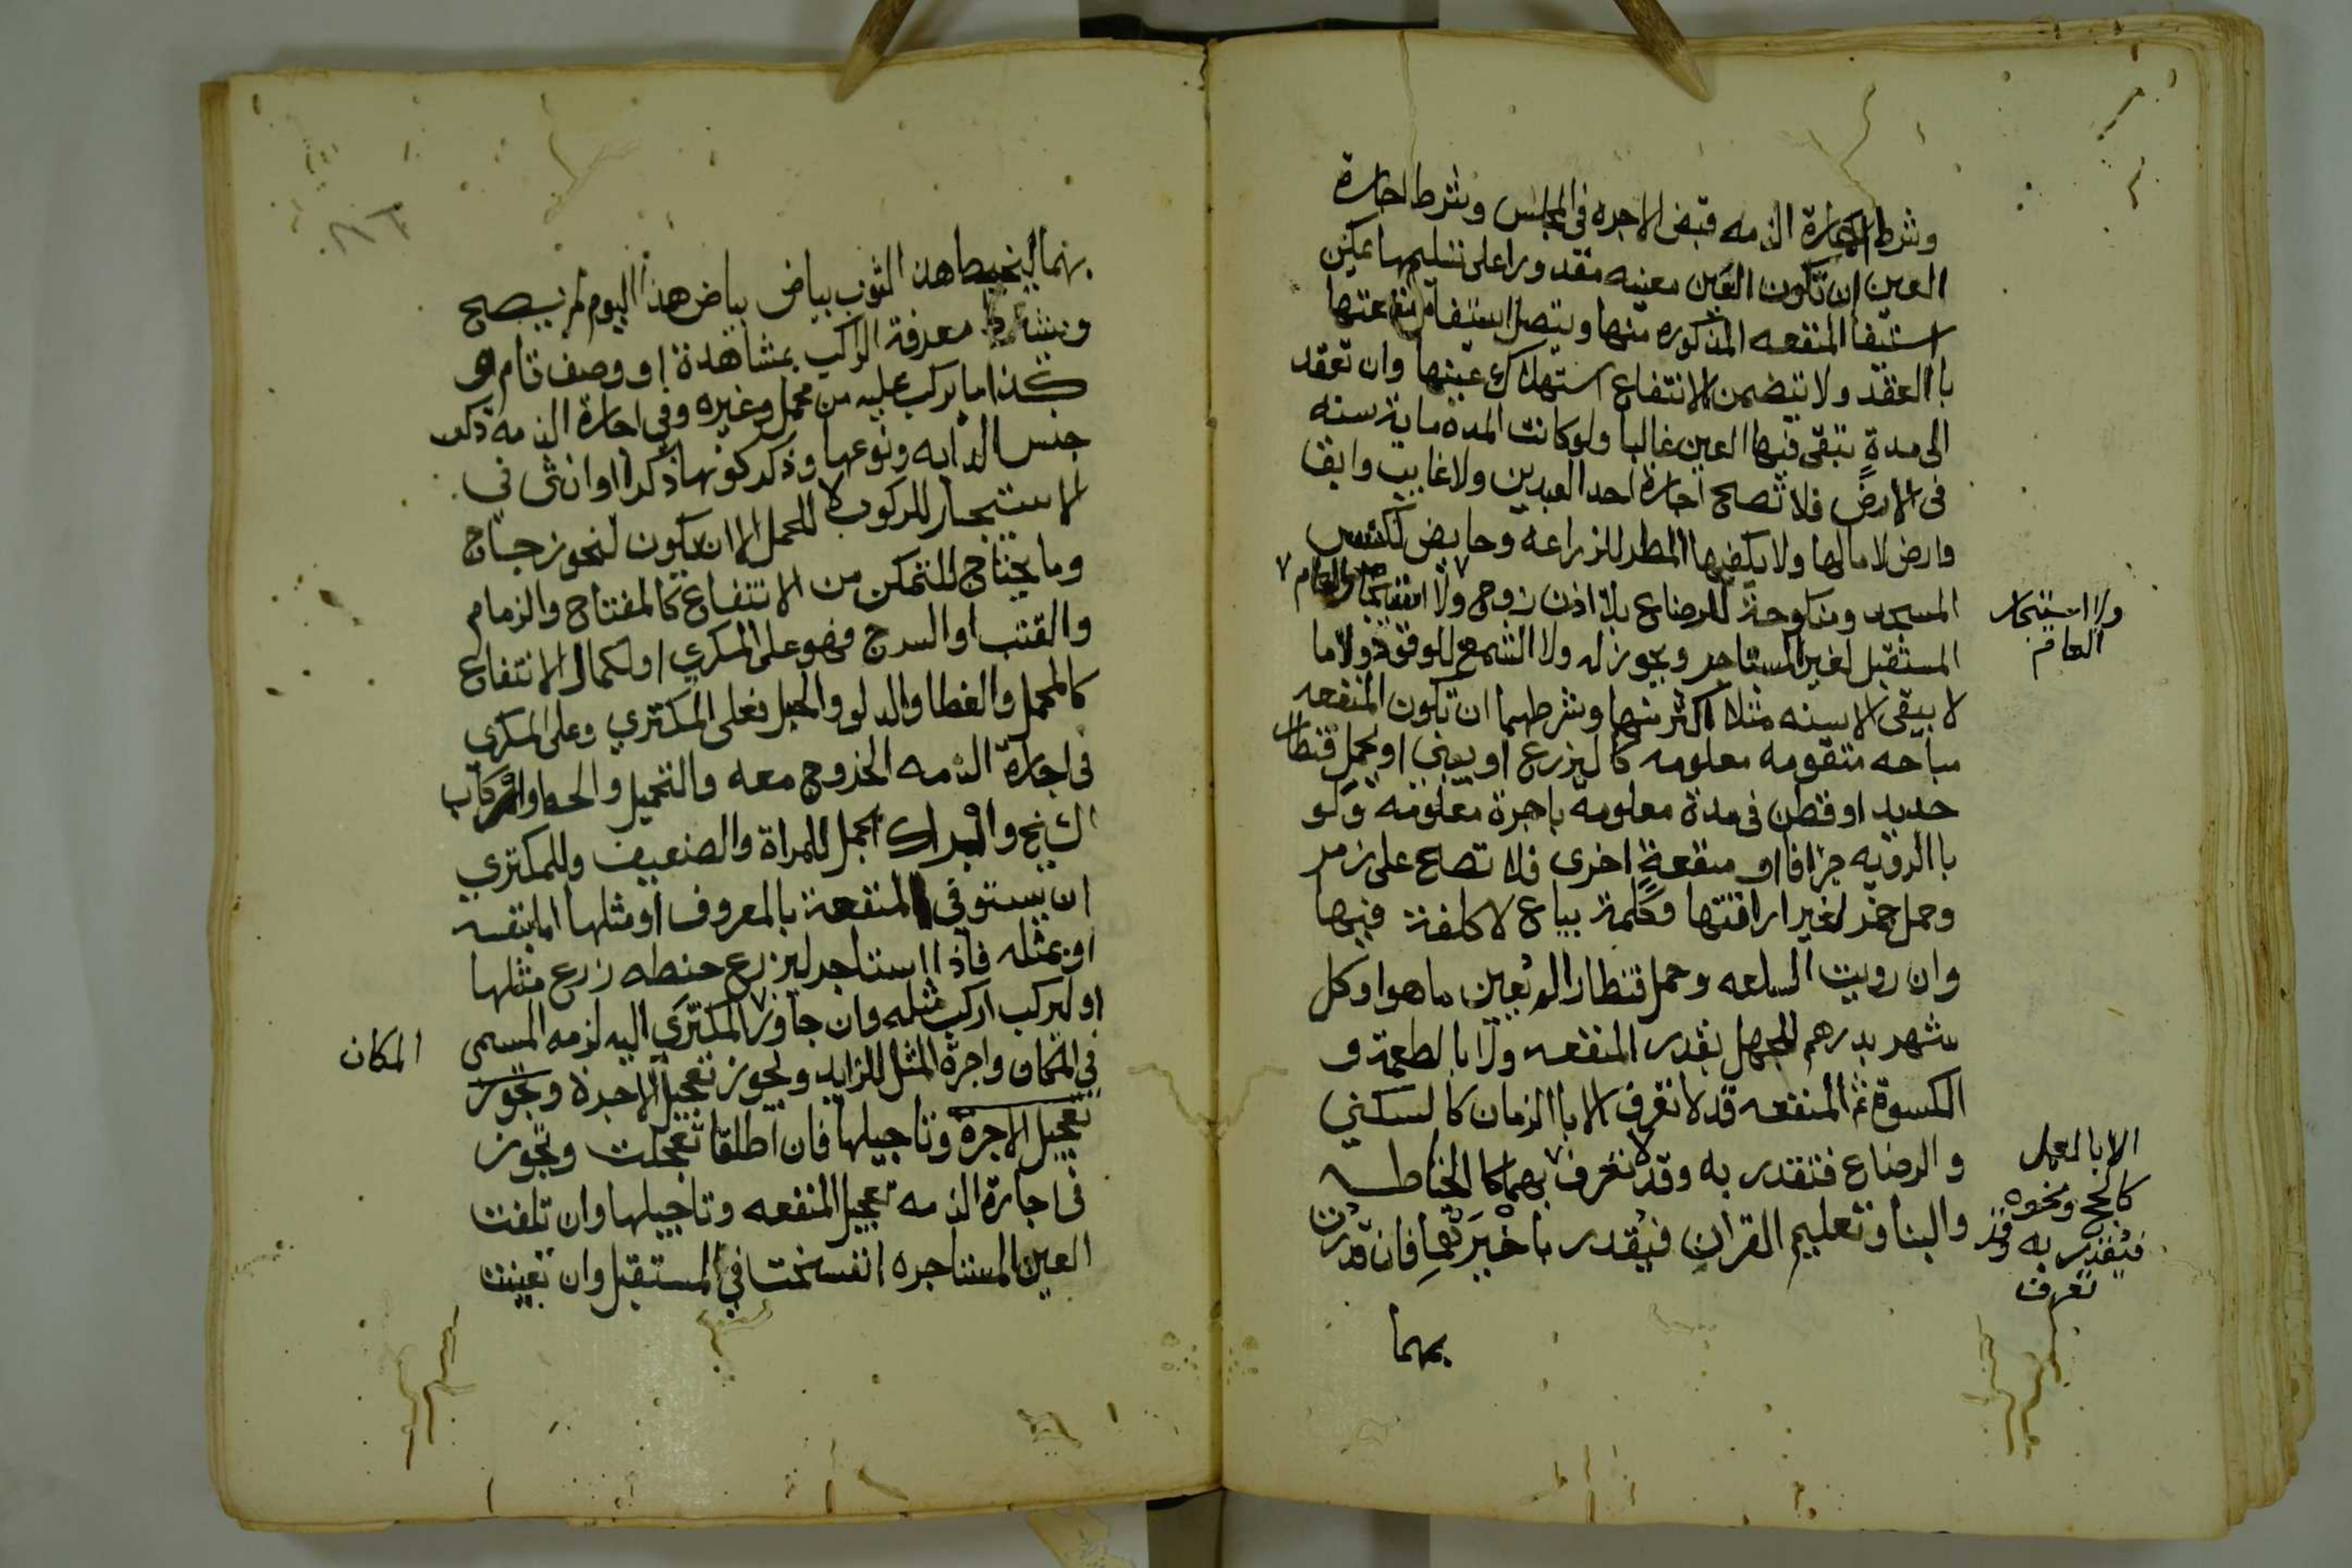 وشرط اجارة الذمه قبض الاجره في المجلس وشرط اجارة
العين ان تكون العين معينه مقدورا على تسليمها يمكن
استيفا المنفعه المذكوره منها ويتصل استيفا منفعتها
باالعقد ولا يتضمن الانتفاع استهلاك عينها وان تعقد
الى مدة تبقى فيها العين غالبا ولو كانت المدة ماية سنه
في الارض فلا تصح اجارة احد العبدين ولا غايب وابق
وارض لا ما لها ولا يكفيها المطر للزراعه وحايض لكنس
المسجد ومنكوحة للرضاع بلا اذن زوج ولا
ولا استيجار
العام
المستقبل لغير المستاجر ويجوز له ولا الشمع للوقود ولا ما
لا يبقى الا سنه مثلا اكثر منها وشرطهما ان تكون المنفعه
مباحه متقومه معلومه كا ليزرع او يبني او يحمل قنطار
حديد او قطن في مدة معلومة باجرة معلومه ولو
باالرويه جزافا او منفعة اخرى فلا تصح على زمر
وحمل خمر لغير اراقتها وكلمة بياع لا كلفة فيها
وان رويت السلعه وحمل قنطار لم يعين ما هو او كل
شهر بدرهم للجهل بقدر المنفعه ولا بالطعمة و
الكسوة ثم المنفعه قد لا تعرف الا باالزمان كا لسكنى
والرضاع فتقدر به وقد لا تعرف بهما كا لخياطه
الا با لعمل
كالحج ونحوه
فيقدر به وقد
تعرف
والبنا وتعليم القران فيقدر باخيرتهما فان قدرت
بهما
بهما ليخيط هذا الثوب بياض بياض هذا اليوم لم يصح
ويشترط معرفة الراكب بمشاهدة او وصف تام و
كذا ما يركب عليه من محمل وغيره وفي اجارة الذمه ذكر
جنس الدابه ونوعها وذكر كونها ذكرا او انثى في
الاستيجار للركوب لا للحمل الا ان يكون لنحو زجاج
وما يحتاج للتمكن من الانتفاع كالمفتاح والزمام
والقتب او السرج فهو على المكري او لكمال الانتفاع
كالمحمل والغطا والدلو والحبل فعلى المكتري وعلى المكري
في اجارة الذمه الخروج معه والتحميل والحط واركاب
الشيخ وابراك الجمل للمراة والضعيف وللمكتري
ان يستوفي المنفعة بالمعروف او مثلها اما بنفسه
او بمثله فاذا استاجر ليزرع حنطه زرع مثلها
او ليركب اركب مثله وان جاوز المكترى اليه لزمه المسمى
المكان
في المكان واجرة المثل للزايد ويجوز تعجيل الاجرة ويجوز
تعجيل الاجرة وتاجيلها فان اطلقا تعجلت ويجوز
في اجارة الذمه تعجيل المنفعه وتاجيلها وان تلفت
العين المستاجره انفسخت في المستقبل وان تعيبت